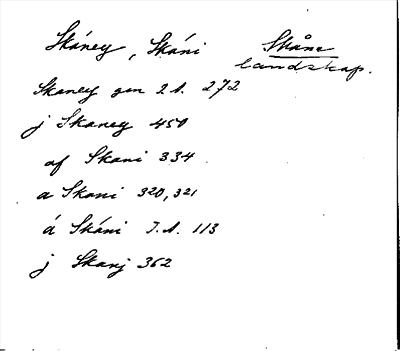 Skáney, Skáni Skåne
landskap.
Skaney gen 2.A. 272
j Skaney 450
af Skani 334
a Skani 320, 321
á Skáni J.A. 113
j Skanj 362